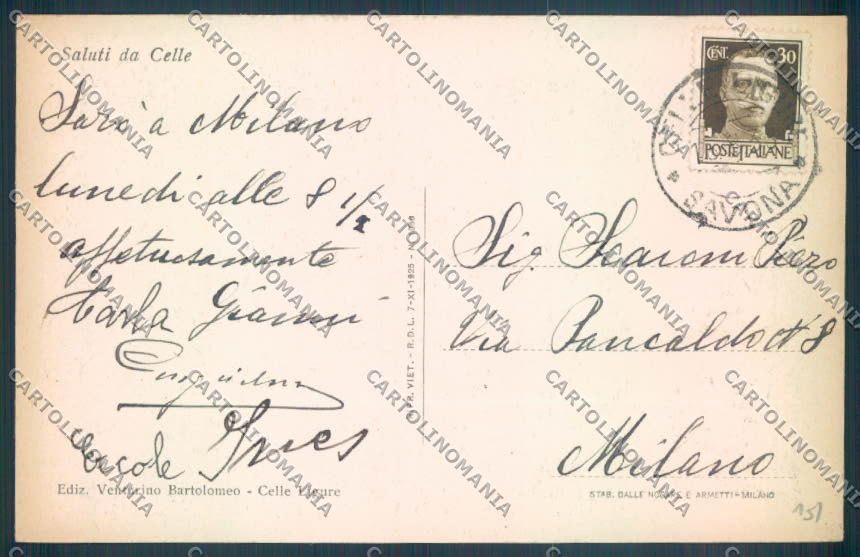 Saluti da Celle
Sarò a Milano
lunedì alle 8 1/2
affetuosamente
Carla Gianni
Ercole Ines
Ediz. Venturino Bartolomeo - Celle Ligure
R.D.L. 7-XI-1925 - N.
CENT. 30
POSTE ITALIANE
CELLE LIGURE
SAVONA
Sig. Scaroni Piero
Via Pancaldo N° 8
Milano
STAB. DALLE NOGARE E ARMETTI - MILANO
151
CARTOLINOMANIA